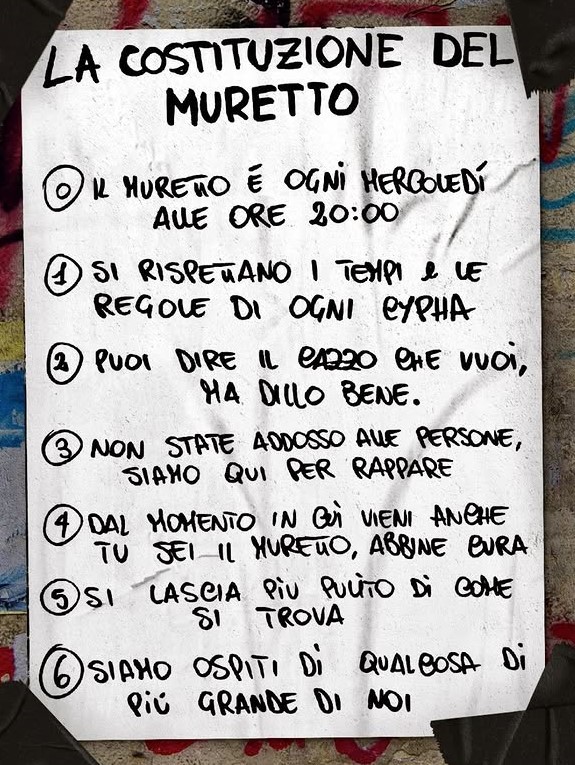 LA COSTITUZIONE DEL
MURETTO
0 IL MURETTO É OGNI MERCOLEDÍ
ALLE ORE 20:00
1 SI RISPETTANO I TEMPI e LE
REGOLE DI OGNI CYPHA
2 PUOI DIRE IL CAZZO CHE VUOI,
MA DILLO BENE.
3 NON STATE ADDOSSO ALLE PERSONE,
SIAMO QUI PER RAPPARE
4 DAL MOMENTO IN CUI VIENI ANCHE
TU SEI IL MURETTO, ABBINE CURA
5 SI LASCIA PIÙ PULITO DI COME
SI TROVA
6 SIAMO OSPITI DI QUALCOSA DI
PIÚ GRANDE DI NOI